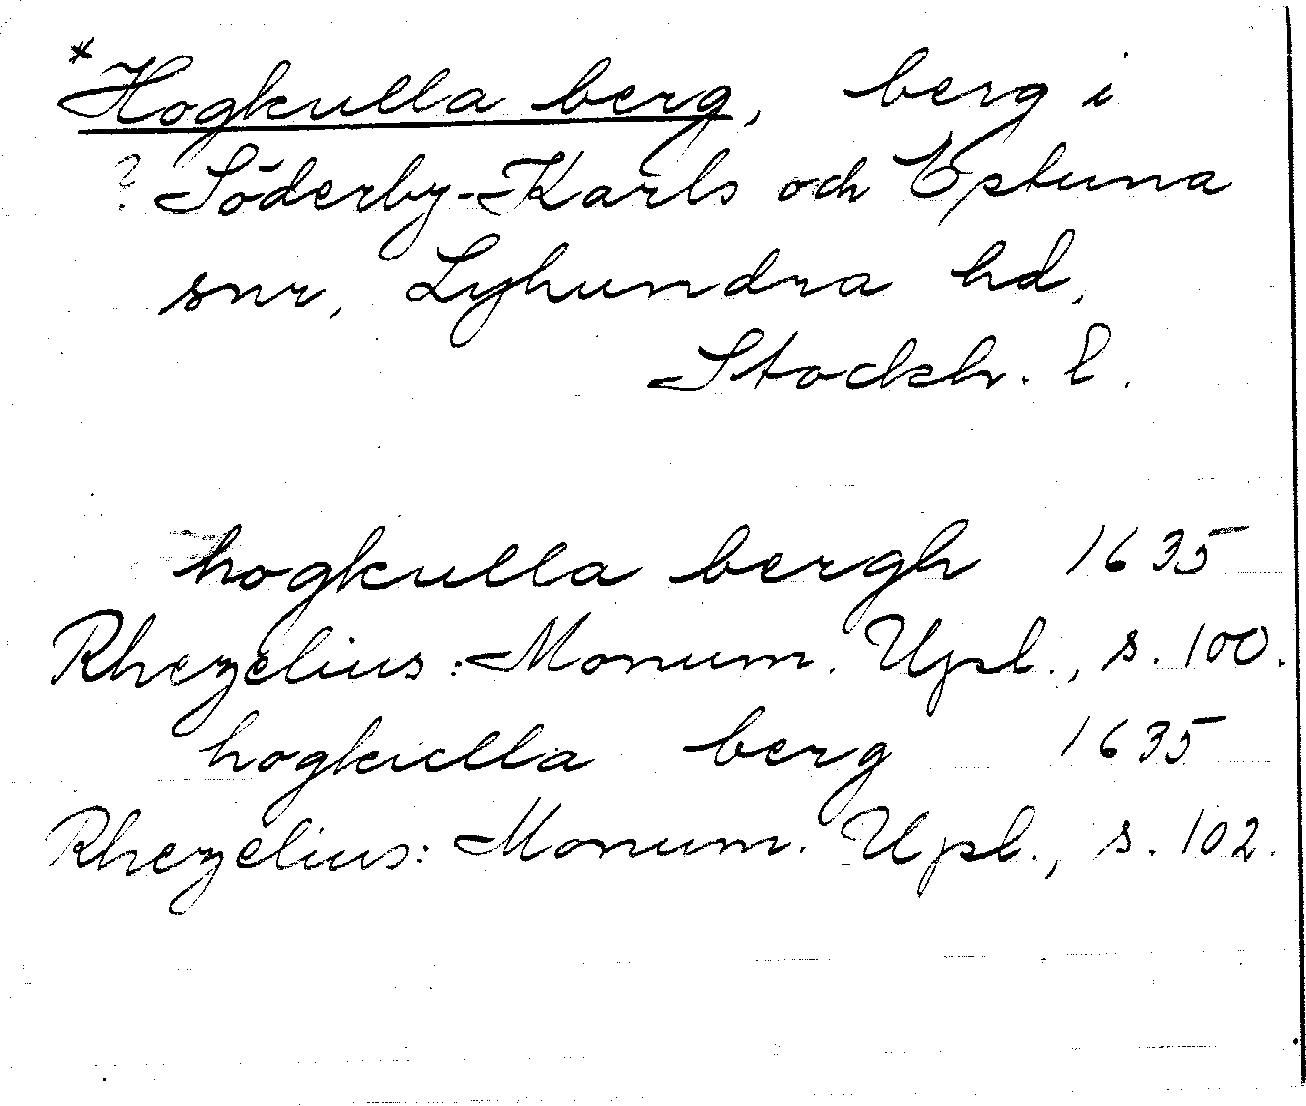 *Hogkulla berg, berg i
? Söderby-Karls och Estuna
snr, Lyhundra hd,
Stockh. l.
hogkulla bergh 1635
Rhezelius: Monum. Upl., s. 100.
hogkulla berg 1635
Rhezelius: Monum. Upl., s. 102.